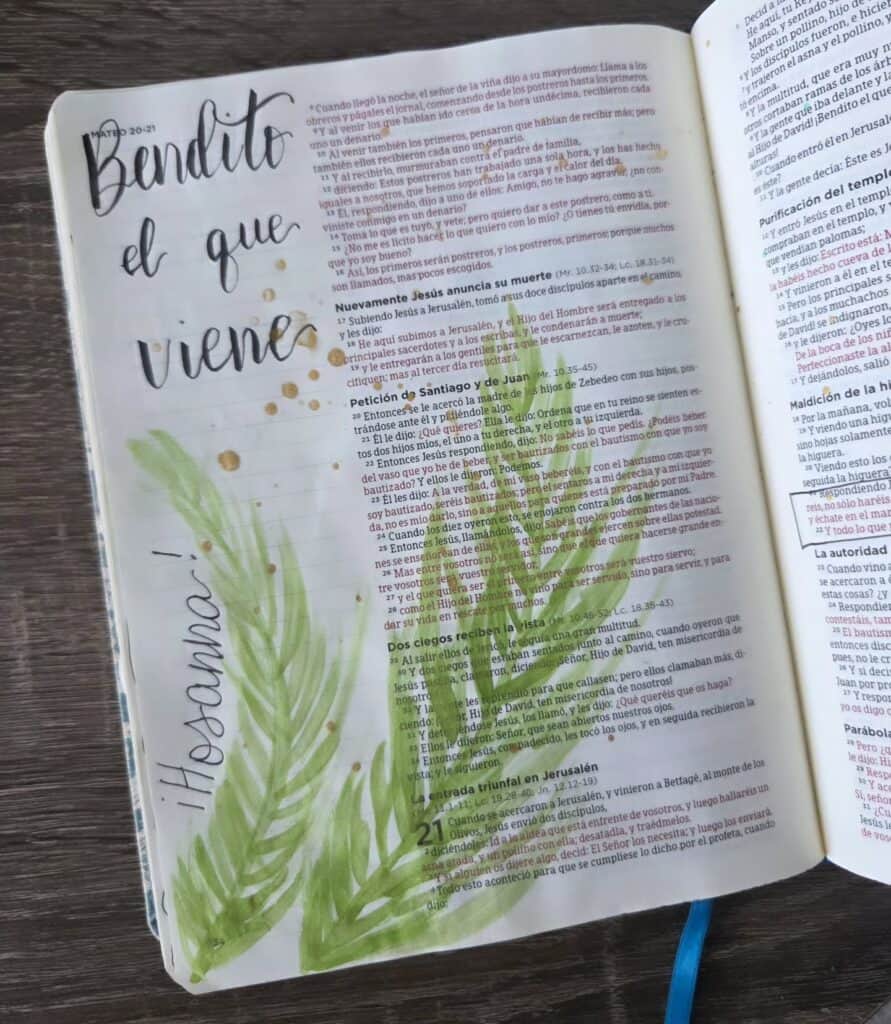 MATEO 20-21
Bendito
el que
viene
¡Hosanna!
⁸Cuando llegó la noche, el señor de la viña dijo a su mayordomo: Llama a los
obreros y págales el jornal, comenzando desde los postreros hasta los primeros.
⁹Y al venir los que habían ido cerca de la hora undécima, recibieron cada
uno un denario.
¹⁰Al venir también los primeros, pensaron que habían de recibir más; pero
también ellos recibieron cada uno un denario.
¹¹Y al recibirlo, murmuraban contra el padre de familia,
¹²diciendo: Estos postreros han trabajado una sola hora, y los has hecho
iguales a nosotros, que hemos soportado la carga y el calor del día.
¹³Él, respondiendo, dijo a uno de ellos: Amigo, no te hago agravio; ¿no con-
viniste conmigo en un denario?
¹⁴Toma lo que es tuyo, y vete; pero quiero dar a este postrero, como a ti.
¹⁵¿No me es lícito hacer lo que quiero con lo mío? ¿O tienes tú envidia, por-
que yo soy bueno?
¹⁶Así, los primeros serán postreros, y los postreros, primeros; porque muchos
son llamados, mas pocos escogidos.
Nuevamente Jesús anuncia su muerte (Mr. 10.32-34; Lc. 18.31-34)
¹⁷Subiendo Jesús a Jerusalén, tomó a sus doce discípulos aparte en el camino,
y les dijo:
¹⁸He aquí subimos a Jerusalén, y el Hijo del Hombre será entregado a los
principales sacerdotes y a los escribas, y le condenarán a muerte;
¹⁹y le entregarán a los gentiles para que le escarnezcan, le azoten, y le cru-
cifiquen; mas al tercer día resucitará.
Petición de Santiago y de Juan (Mr. 10.35-45)
²⁰Entonces se le acercó la madre de los hijos de Zebedeo con sus hijos, pos-
trándose ante él y pidiéndole algo.
²¹Él le dijo: ¿Qué quieres? Ella le dijo: Ordena que en tu reino se sienten es-
tos dos hijos míos, el uno a tu derecha, y el otro a tu izquierda.
²²Entonces Jesús respondiendo, dijo: No sabéis lo que pedís. ¿Podéis beber
del vaso que yo he de beber, y ser bautizados con el bautismo con que yo soy
bautizado? Y ellos le dijeron: Podemos.
²³Él les dijo: A la verdad, de mi vaso beberéis, y con el bautismo con que yo
soy bautizado, seréis bautizados; pero el sentaros a mi derecha y a mi izquier-
da, no es mío darlo, sino a aquellos para quienes está preparado por mi Padre.
²⁴Cuando los diez oyeron esto, se enojaron contra los dos hermanos.
²⁵Entonces Jesús, llamándolos, dijo: Sabéis que los gobernantes de las nacio-
nes se enseñorean de ellas, y los que son grandes ejercen sobre ellas potestad.
²⁶Mas entre vosotros no será así, sino que el que quiera hacerse grande en-
tre vosotros será vuestro servidor,
²⁷y el que quiera ser el primero entre vosotros será vuestro siervo;
²⁸como el Hijo del Hombre no vino para ser servido, sino para servir, y para
dar su vida en rescate por muchos.
Dos ciegos reciben la vista (Mr. 10.46-52; Lc. 18.35-43)
²⁹Al salir ellos de Jericó, le seguía una gran multitud.
³⁰Y dos ciegos que estaban sentados junto al camino, cuando oyeron que
Jesús pasaba, clamaron, diciendo: ¡Señor, Hijo de David, ten misericordia de
nosotros!
³¹Y la gente les reprendió para que callasen; pero ellos clamaban más, di-
ciendo: ¡Señor, Hijo de David, ten misericordia de nosotros!
³²Y deteniéndose Jesús, los llamó, y les dijo: ¿Qué queréis que os haga?
³³Ellos le dijeron: Señor, que sean abiertos nuestros ojos.
³⁴Entonces Jesús, compadecido, les tocó los ojos, y en seguida recibieron la
vista; y le siguieron.
La entrada triunfal en Jerusalén
11.1-11; Lc. 19.28-40; Jn. 12.12-19)
21 Cuando se acercaron a Jerusalén, y vinieron a Betfagé, al monte de los
Olivos, Jesús envió dos discípulos,
²diciéndoles: Id a la aldea que está enfrente de vosotros, y luego hallaréis un
asna atada, y un pollino con ella; desatadla, y traédmelos.
³Y si alguien os dijere algo, decid: El Señor los necesita; y luego los enviará.
⁴Todo esto aconteció para que se cumpliese lo dicho por el profeta, cuando
dijo:
⁵Decid a la
He aquí, tu Re
Manso, y sentado s
Sobre un pollino, hijo de
⁶Y los discípulos fueron, e hicier
⁷y trajeron el asna y el pollino,
tó encima.
⁸Y la multitud, que era muy n
otros cortaban ramas de los árb
⁹Y la gente que iba delante y l
al Hijo de David! ¡Bendito el que
alturas!
¹⁰Cuando entró él en Jerusalé
es éste?
¹¹Y la gente decía: Éste es J
Purificación del templo
¹²Y entró Jesús en el temp
compraban en el templo, y
que vendían palomas;
¹³y les dijo: Escrito está: M
la habéis hecho cueva de l
¹⁴Y vinieron a él en el te
¹⁵Pero los principales s
hacía, y a los muchachos
de David! se indignaron
¹⁶y le dijeron: ¿Oyes lo
De la boca de los niñ
Perfeccionaste la al
¹⁷Y dejándolos, salió
Maldición de la hi
¹⁸Por la mañana, vol
¹⁹Y viendo una higu
sino hojas solamente
la higuera.
²⁰Viendo esto los d
seguida la higuera
²¹Respondiendo J
reis, no sólo haréis
y échate en el mar
²²Y todo lo que
La autoridad
²³Cuando vino a
se acercaron a
estas cosas? ¿Y
²⁴Respondiend
contestáis, tam
²⁵El bautism
entonces disc
pues, no le cr
²⁶Y si decim
Juan por pro
²⁷Y respon
yo os digo c
Parábola
²⁸Pero ¿q
le dijo: Hi
²⁹Respo
³⁰Y ace
Sí, seño
³¹¿Cu
Jesús le
de vos